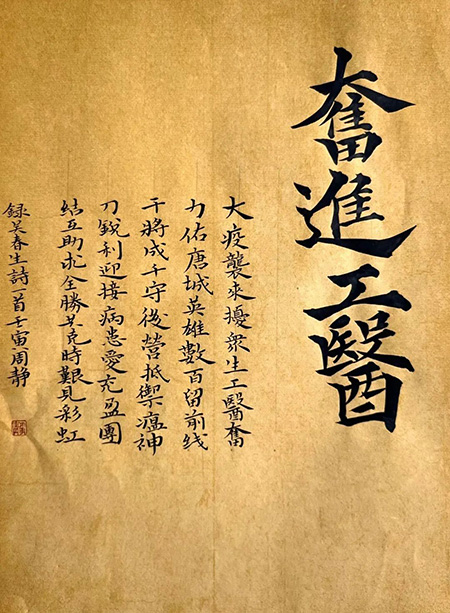 奮進工醫
大疫襲來擾衆生工醫奮
力佑唐城英雄數百留前线
干將成千守後營抵禦瘟神
刀銳利迎接病患愛充盈團
結互助求全勝共克時艱見彩虹
録吴春生詩一首壬寅周静